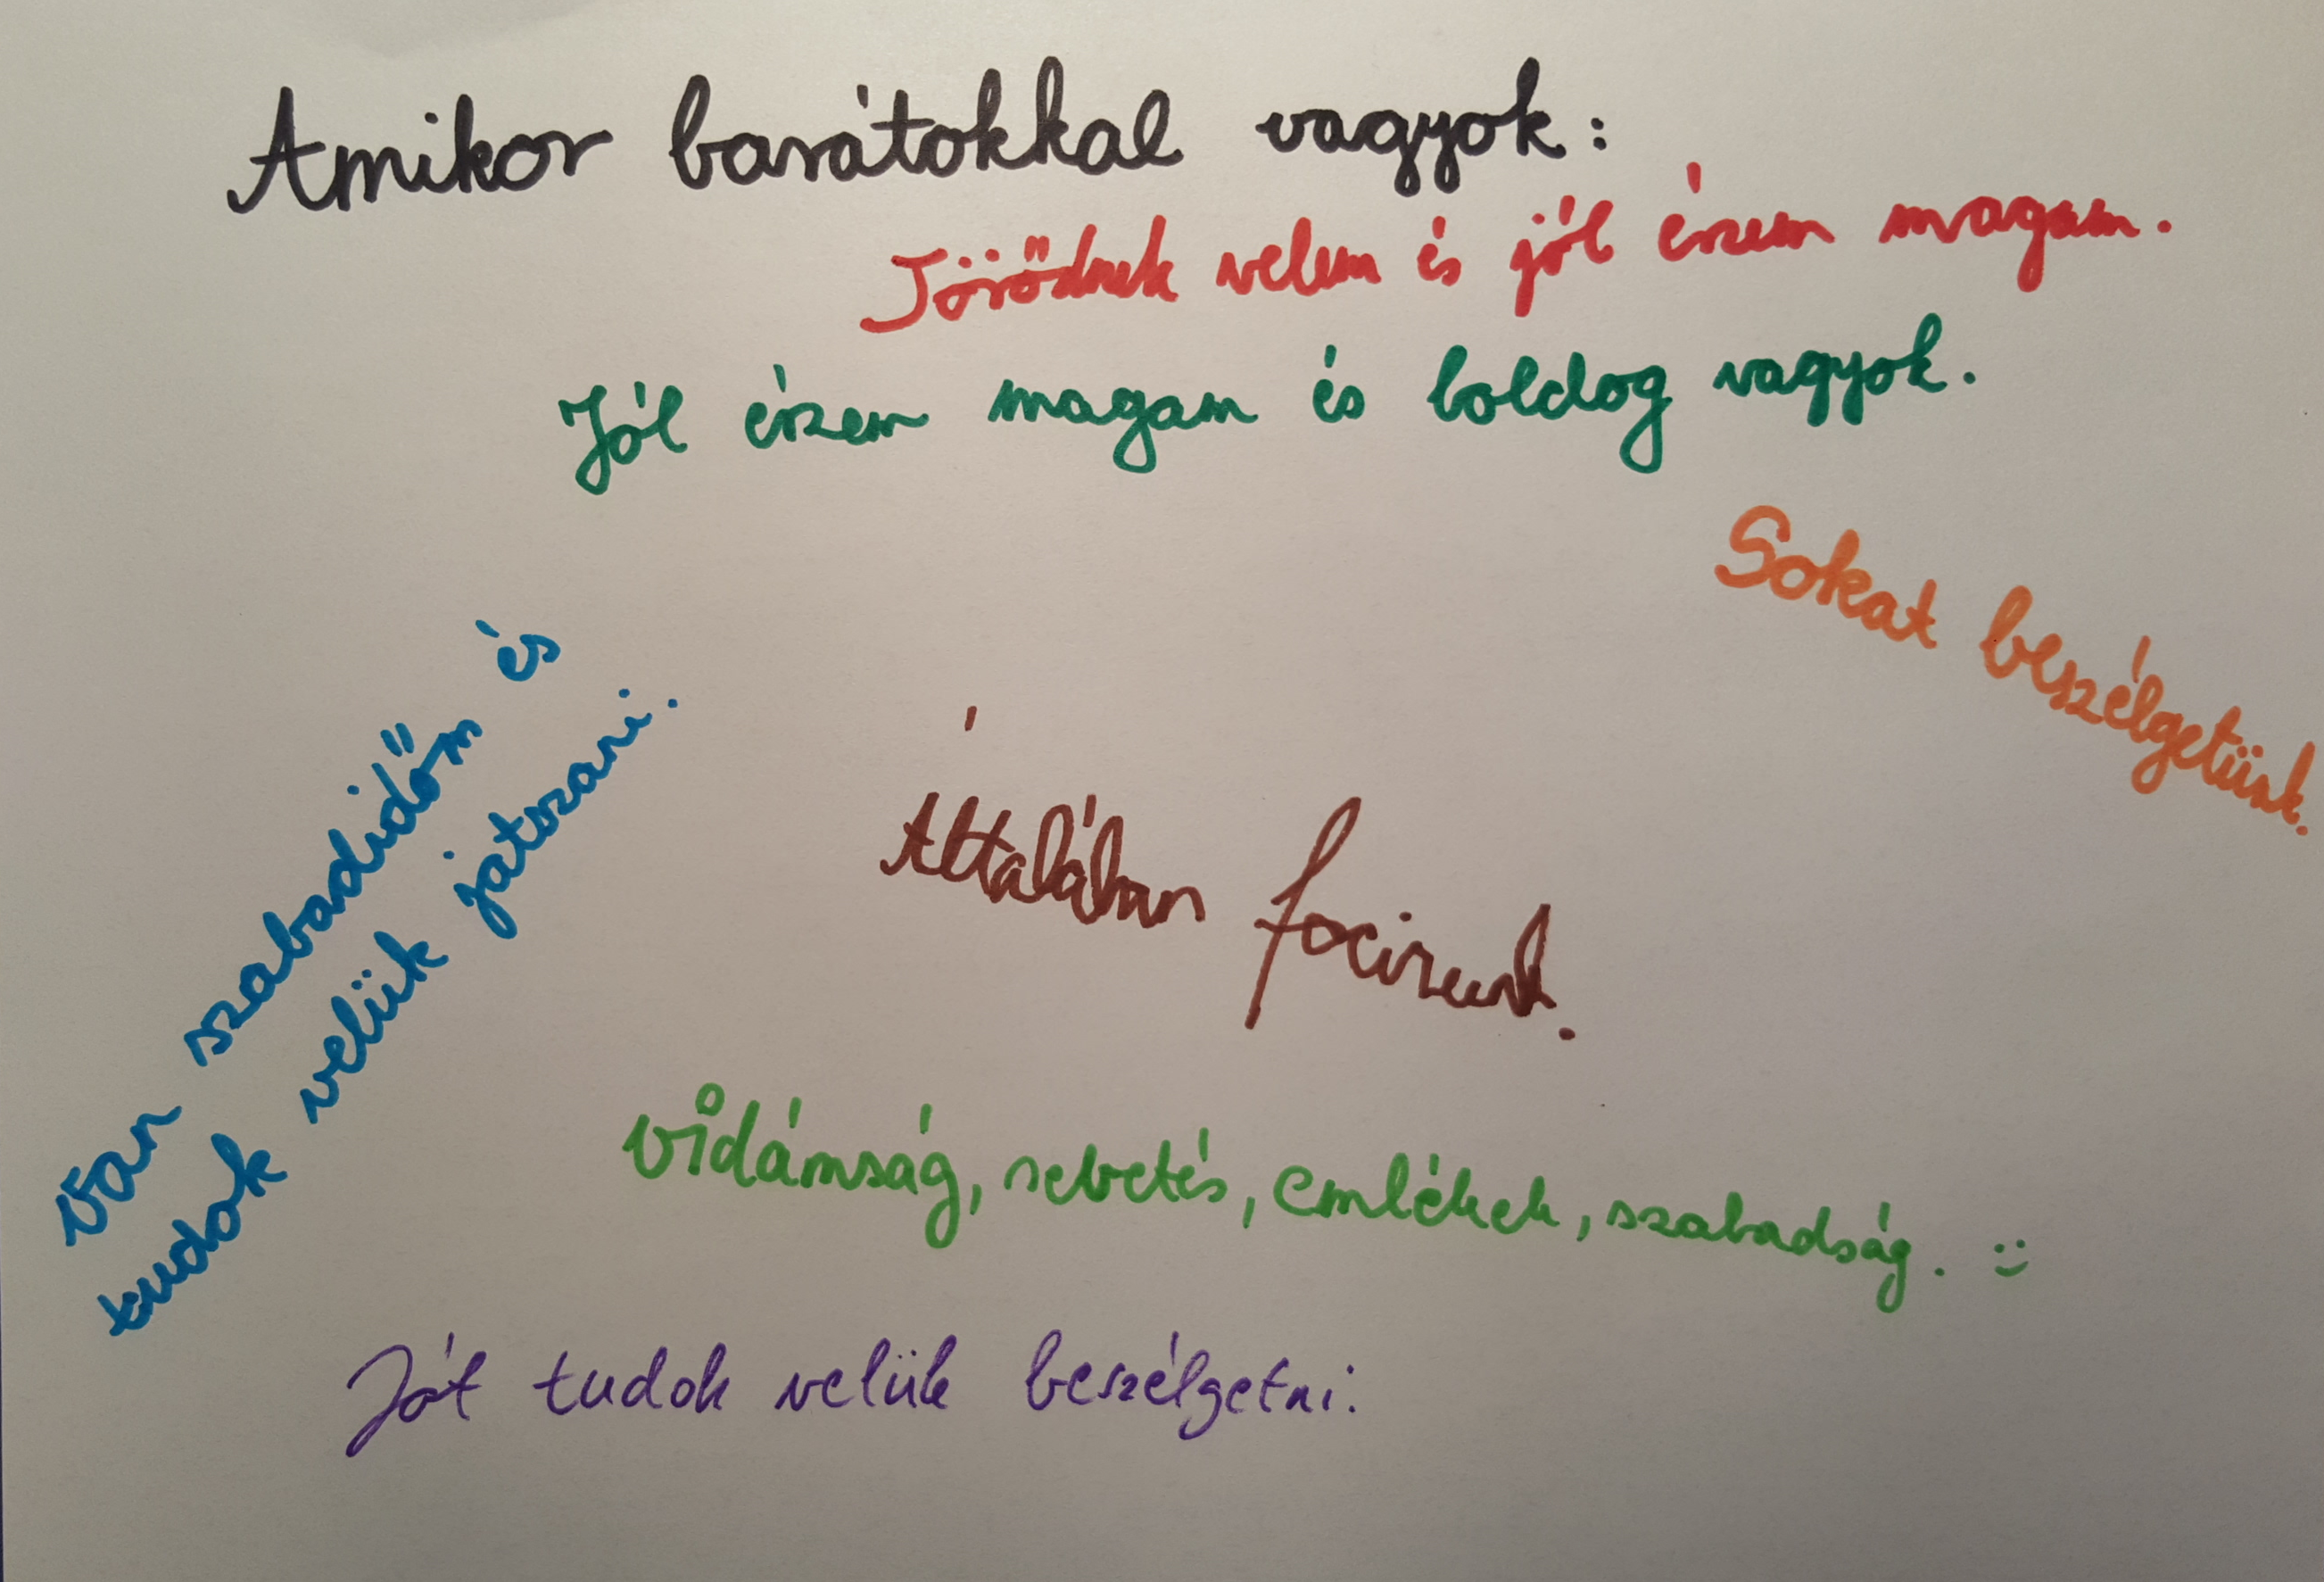 Amikor barátokkal vagyok:
Törődnek velem és jól érzem magam.
Jól érzem magam és boldog vagyok.
Sokat beszélgetünk.
Van szabadidőm és
tudok velük játszani.
Általában focizunk.
Vidámság, nevetés, emlékek, szabadság. :)
Jót tudok velük beszélgetni.